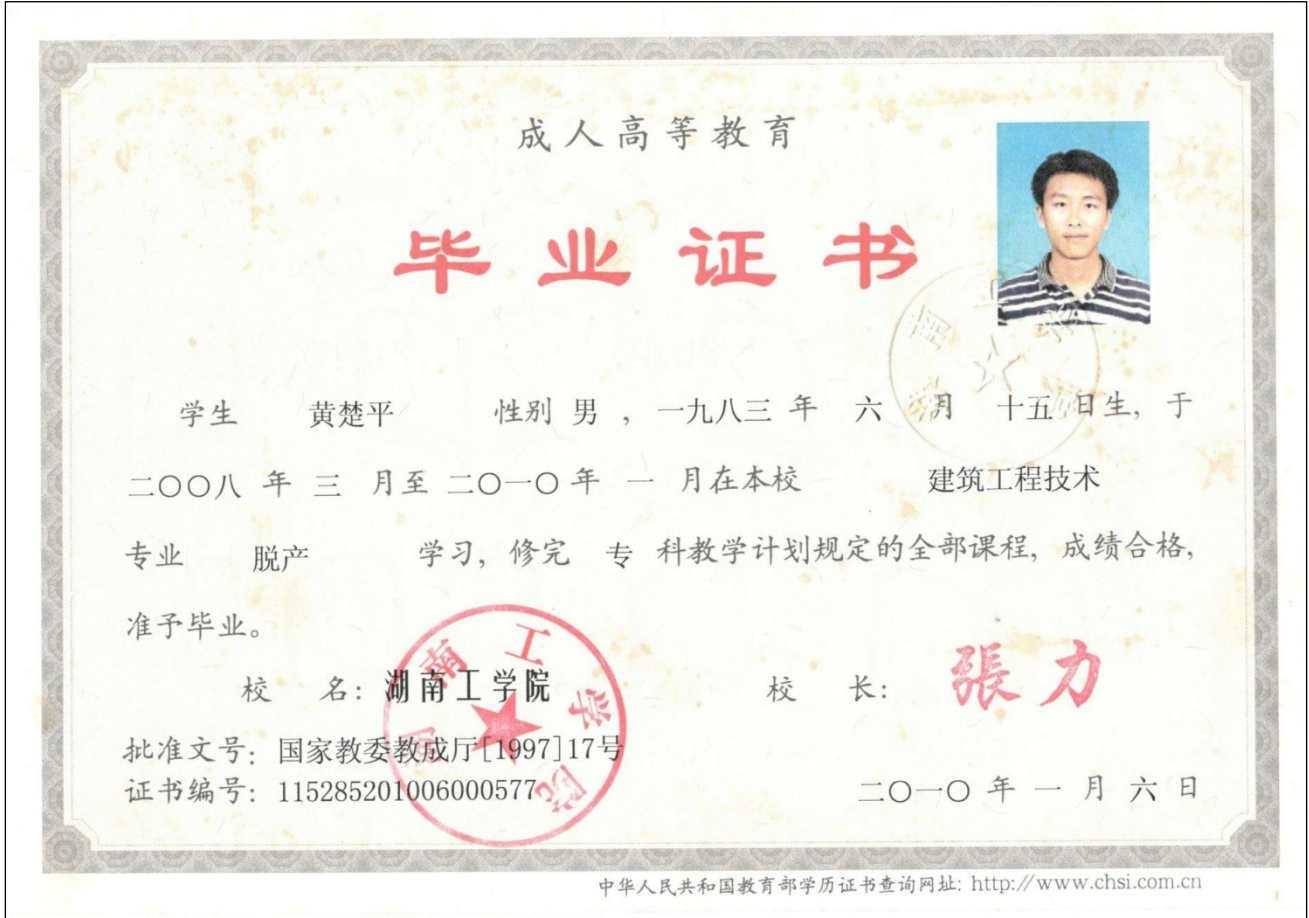 成人高等教育
毕业证书
学生 黄楚平 性别 男 , 一九八三 年 六 月 十五 日生, 于
二〇〇八 年 三 月至 二〇一〇 年 一 月在本校 建筑工程技术
专业 脱产 学习, 修完 专 科教学计划规定的全部课程, 成绩合格,
准予毕业。
校 名: 湖南工学院 校 长: 張力
湖南工学院
批准文号: 国家教委教成厅[1997]17号
证书编号: 115285201006000577
二〇一〇 年 一 月 六 日
中华人民共和国教育部学历证书查询网址: http://www.chsi.com.cn